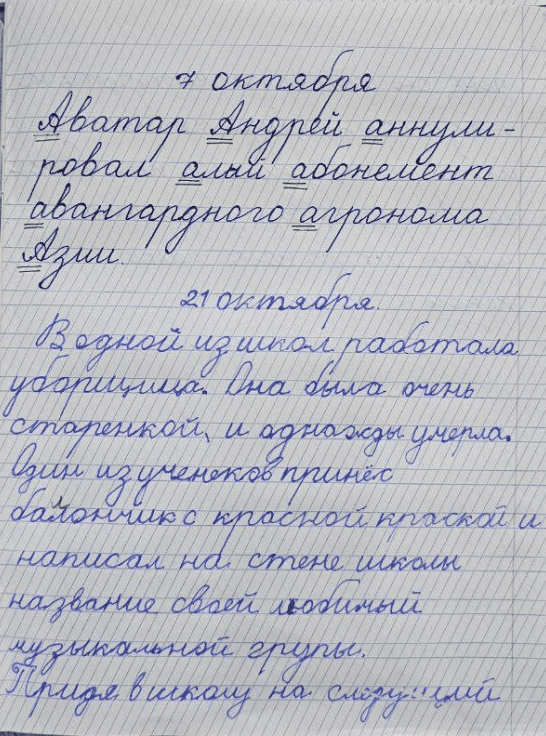 7 октября
Аватар Андрей аннули-
ровал алый абонемент
авангардного агронома
Азии.
21 октября.
В одной из школ работала
уборщица. Она была очень
старенкой, и однажды умерла.
Один из ученеков принёс
балончик с красной краской и
написал на стене школы
название своей любимый
музыкальной групы.
Придя в школу на следующий